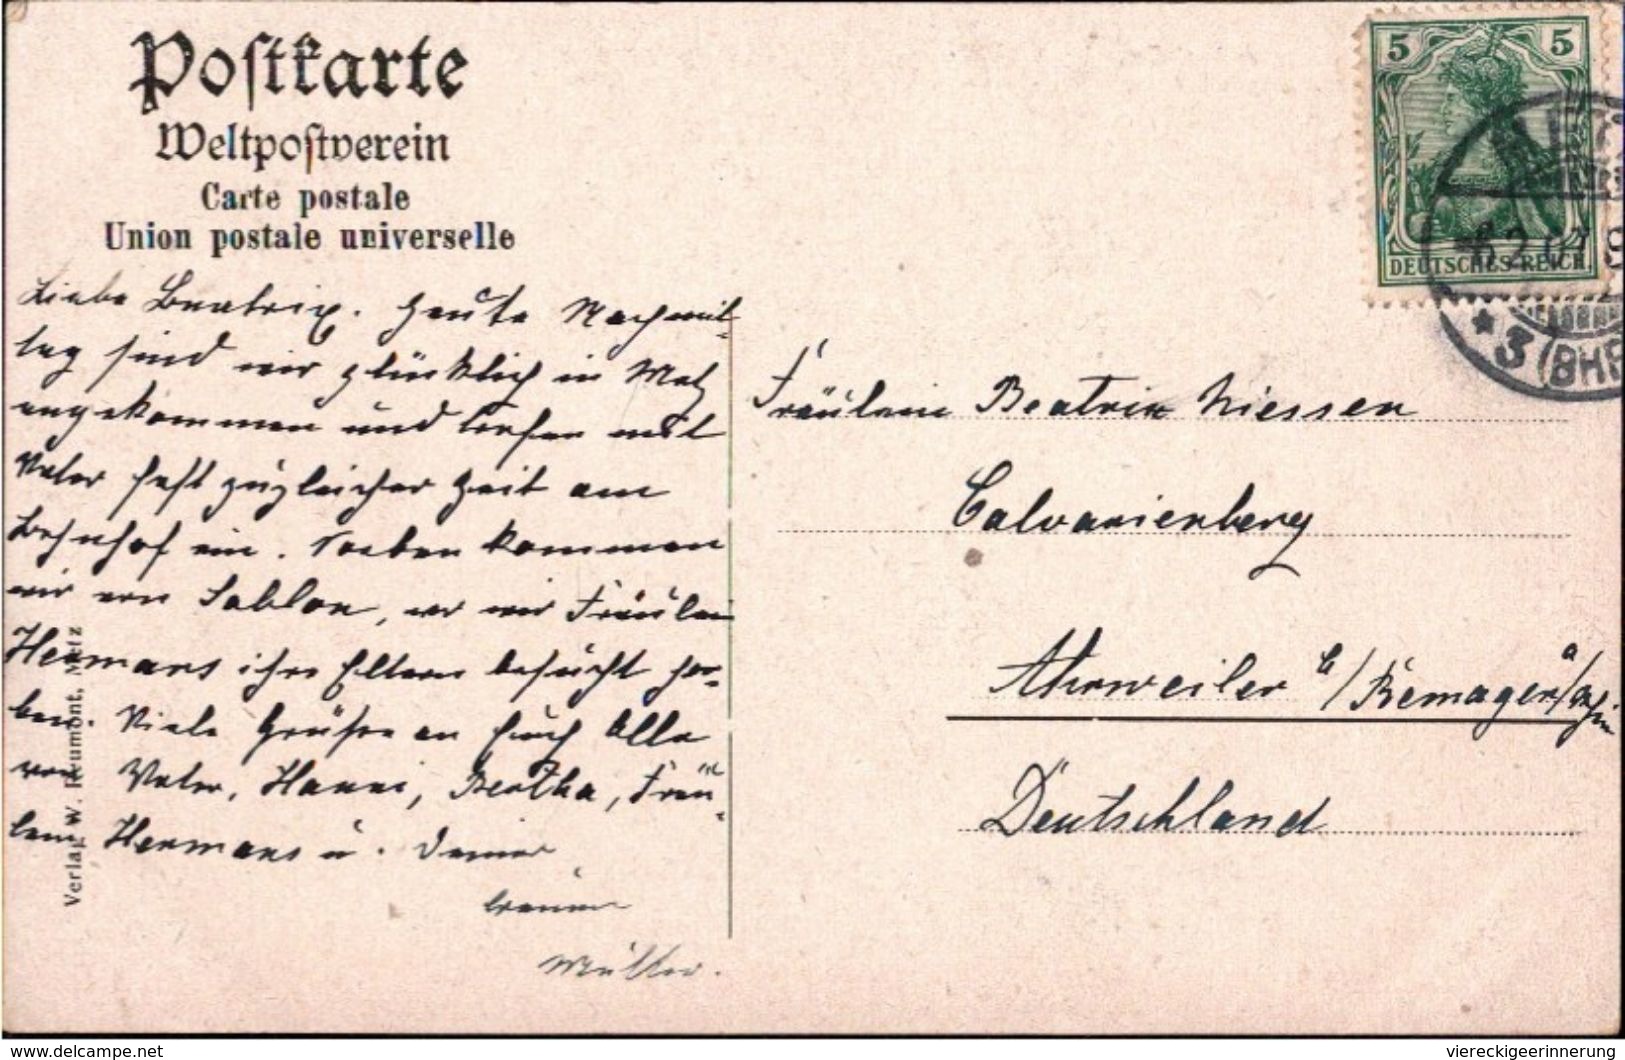 Postkarte
Weltpostverein
Carte postale
Union postale universelle
Liebe Beatrix. Heute Nachmit-
tag sind wir glücklich in Metz
angekommen und trafen mit
Vater fast zugleicher Zeit am
Bahnhof ein. Soeben kommen
wir von Sablon, wo wir Fräulein
Hermans ihre Eltern besucht ha-
ben. Viele Grüße an Euch Alle
von Vater, Hanni, Bertha, Fräu-
lein Hermans u. Deiner
treuen
Mutter.
Verlag W. Heumont, Metz
5 5
DEUTSCHES REICH
6 2 07
* 3 (BHF
Fräulein Beatrix Niessen
Calvarienberg
Ahrweiler b/Remagen a/Rhein
Deutschland
delcampe.net
viereckigeerinnerung